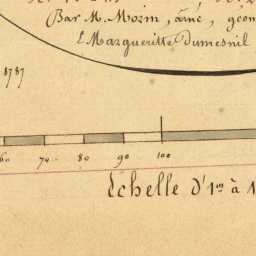 Par M. Morin, aîné, géom
E. Margueritte Dumesnil
1787
60 70 80 90 100
Echelle d'1m à 1